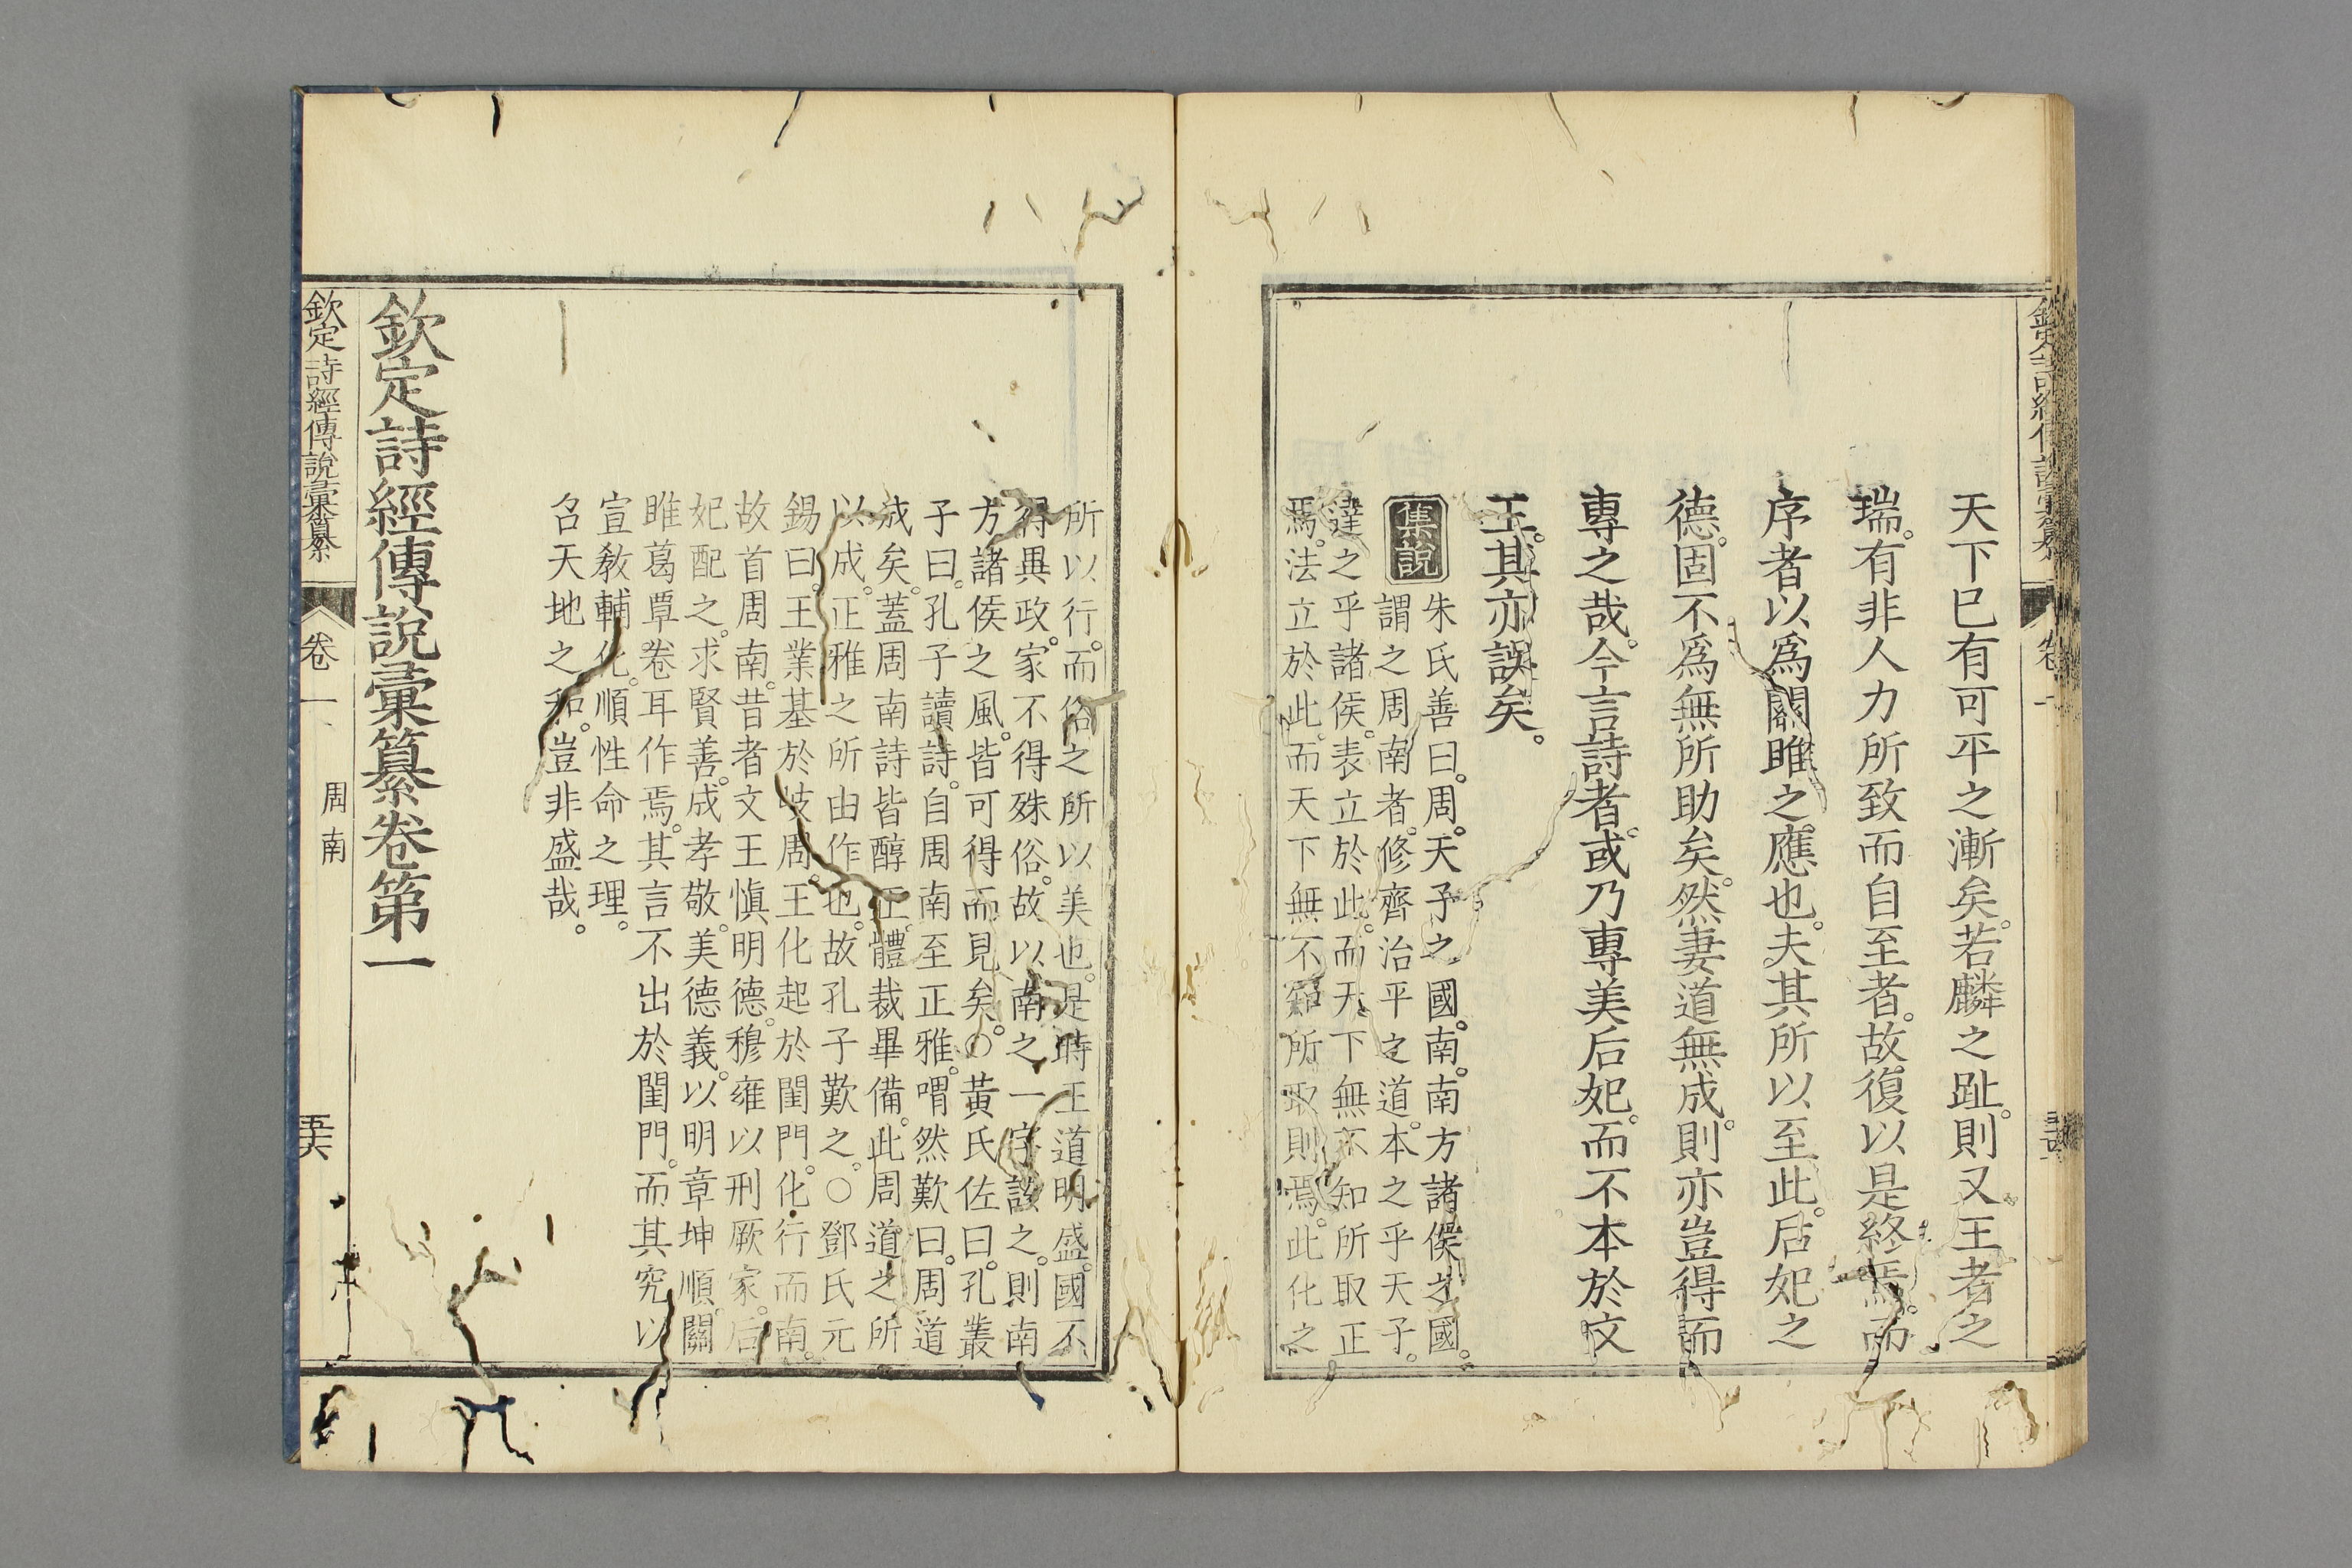 天下已有可平之漸矣。若麟之趾。則又王者之
瑞。有非人力所致而自至者。故復以是終焉。而
序者以爲關雎之應也。夫其所以至此。后妃之
德。固不爲無所助矣。然妻道無成。則亦豈得而
專之哉。今言詩者。或乃專美后妃。而不本於文
王。其亦誤矣。
集說
朱氏善曰。周。天子之國。南。南方諸侯之國。
謂之周南者。修齊治平之道。本之乎天子。
達之乎諸侯。表立於此。而天下無不知所取正
焉。法立於此。而天下無不知所取則焉。此化之
所以行。而俗之所以美也。是時王道明盛。國不
得異政。家不得殊俗。故以南之一字該之。則南
方諸侯之風。皆可得而見矣。○黃氏佐曰。孔叢
子曰。孔子讀詩。自周南至正雅。喟然歎曰。周道
成矣。蓋周南詩皆醇正。體裁畢備。此周道之所
以成。正雅之所由作也。故孔子歎之。○鄧氏元
錫曰。王業基於岐周。王化起於閨門。化行而南。
故首周南。昔者文王愼明德。穆雍以刑厥家。后
妃配之。求賢善。成孝敬。美德義。以明章坤順。關
雎葛覃卷耳作焉。其言不出於閨門。而其究以
宣敎輔化。順性命之理。
召天地之和。豈非盛哉。
欽定詩經傳說彙纂卷第一
欽定詩經傳說彙纂
卷一
周南